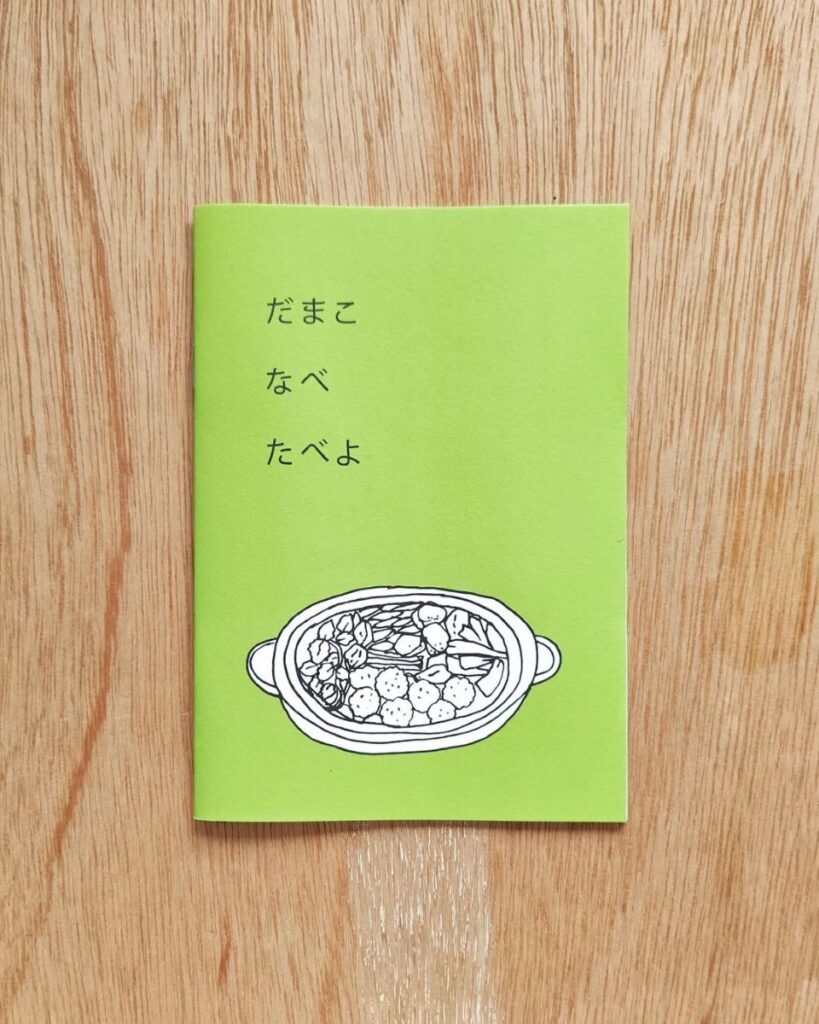 だまこ
なべ
たべよ